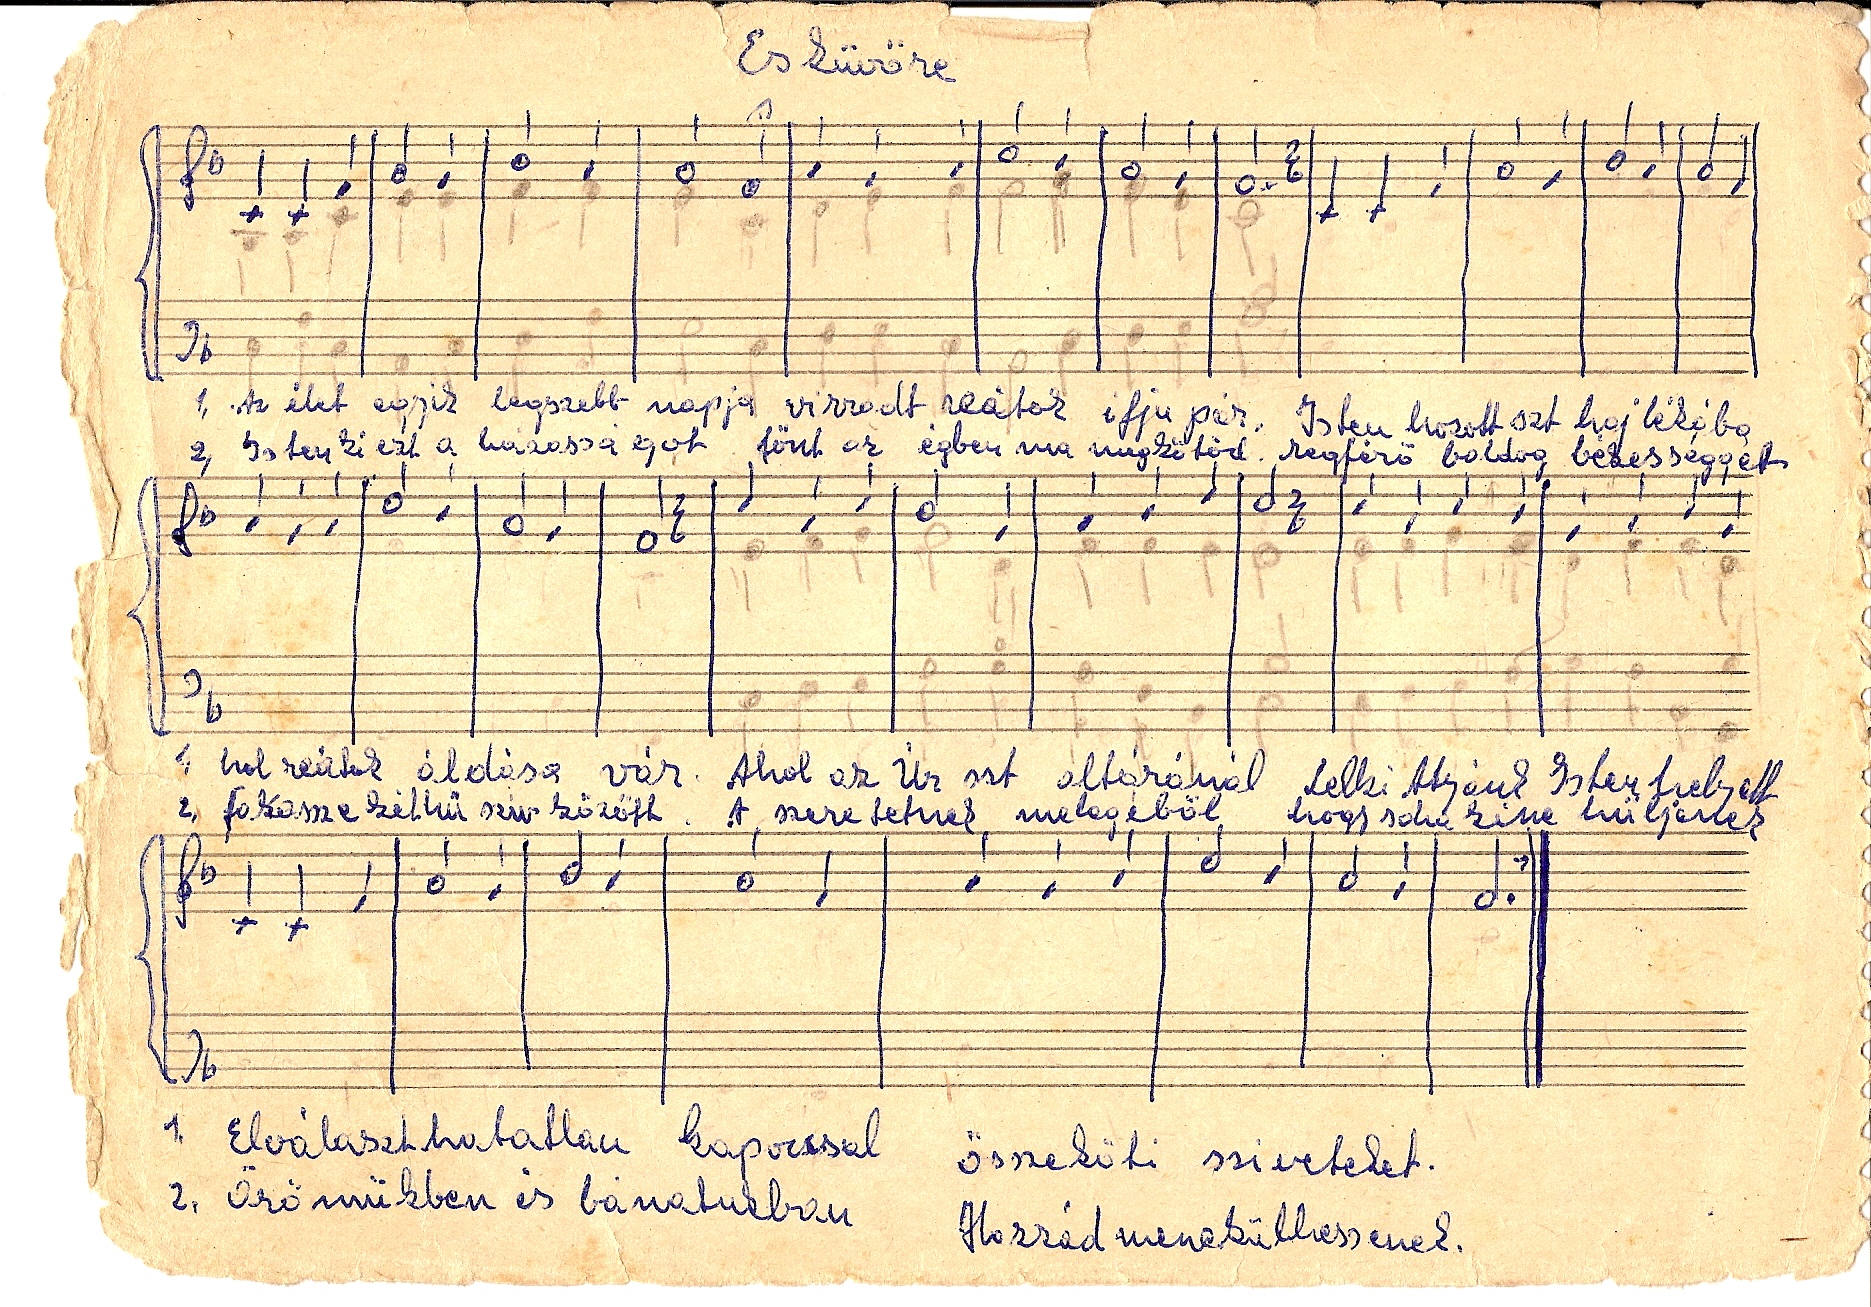 Esküvőre
1, Az élet egyik legszebb napja virradt reátok ifju pár. Isten hozott szt hajlékába
2, Istenki ezt a házasságot fönt az égben ma megkötöd. segférő boldog békességget
1, hol reátok áldása vár. Ahol az Úr szt oltáránál Lelki Atyánk Isten helyett
2, fakassze kéthű sziv között. A szeretetnek melegéből hogy soha kine hüljenek
1, Elválaszthatatlan kapocssal összeköti sziveteket.
2, Örömükben és bánatukban Hozzád menekülhessenek.